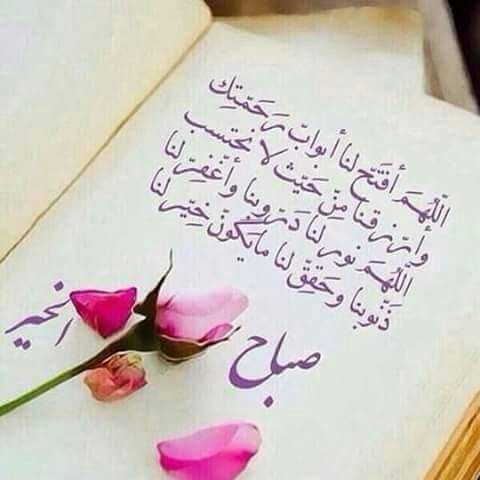 اللّهُمَ أفتَح لنا أبوابّ رَحَمّتِك
وأرزقنا مِنّ حَيّث لا نحتسب
اللّهُمَ نور لنا دَرّوبنا وأغّفِرّ لنا
ذَنّوبنا وحَقِقّ لنا مايَكّونّ خِيّر لنا
صباح
الخير